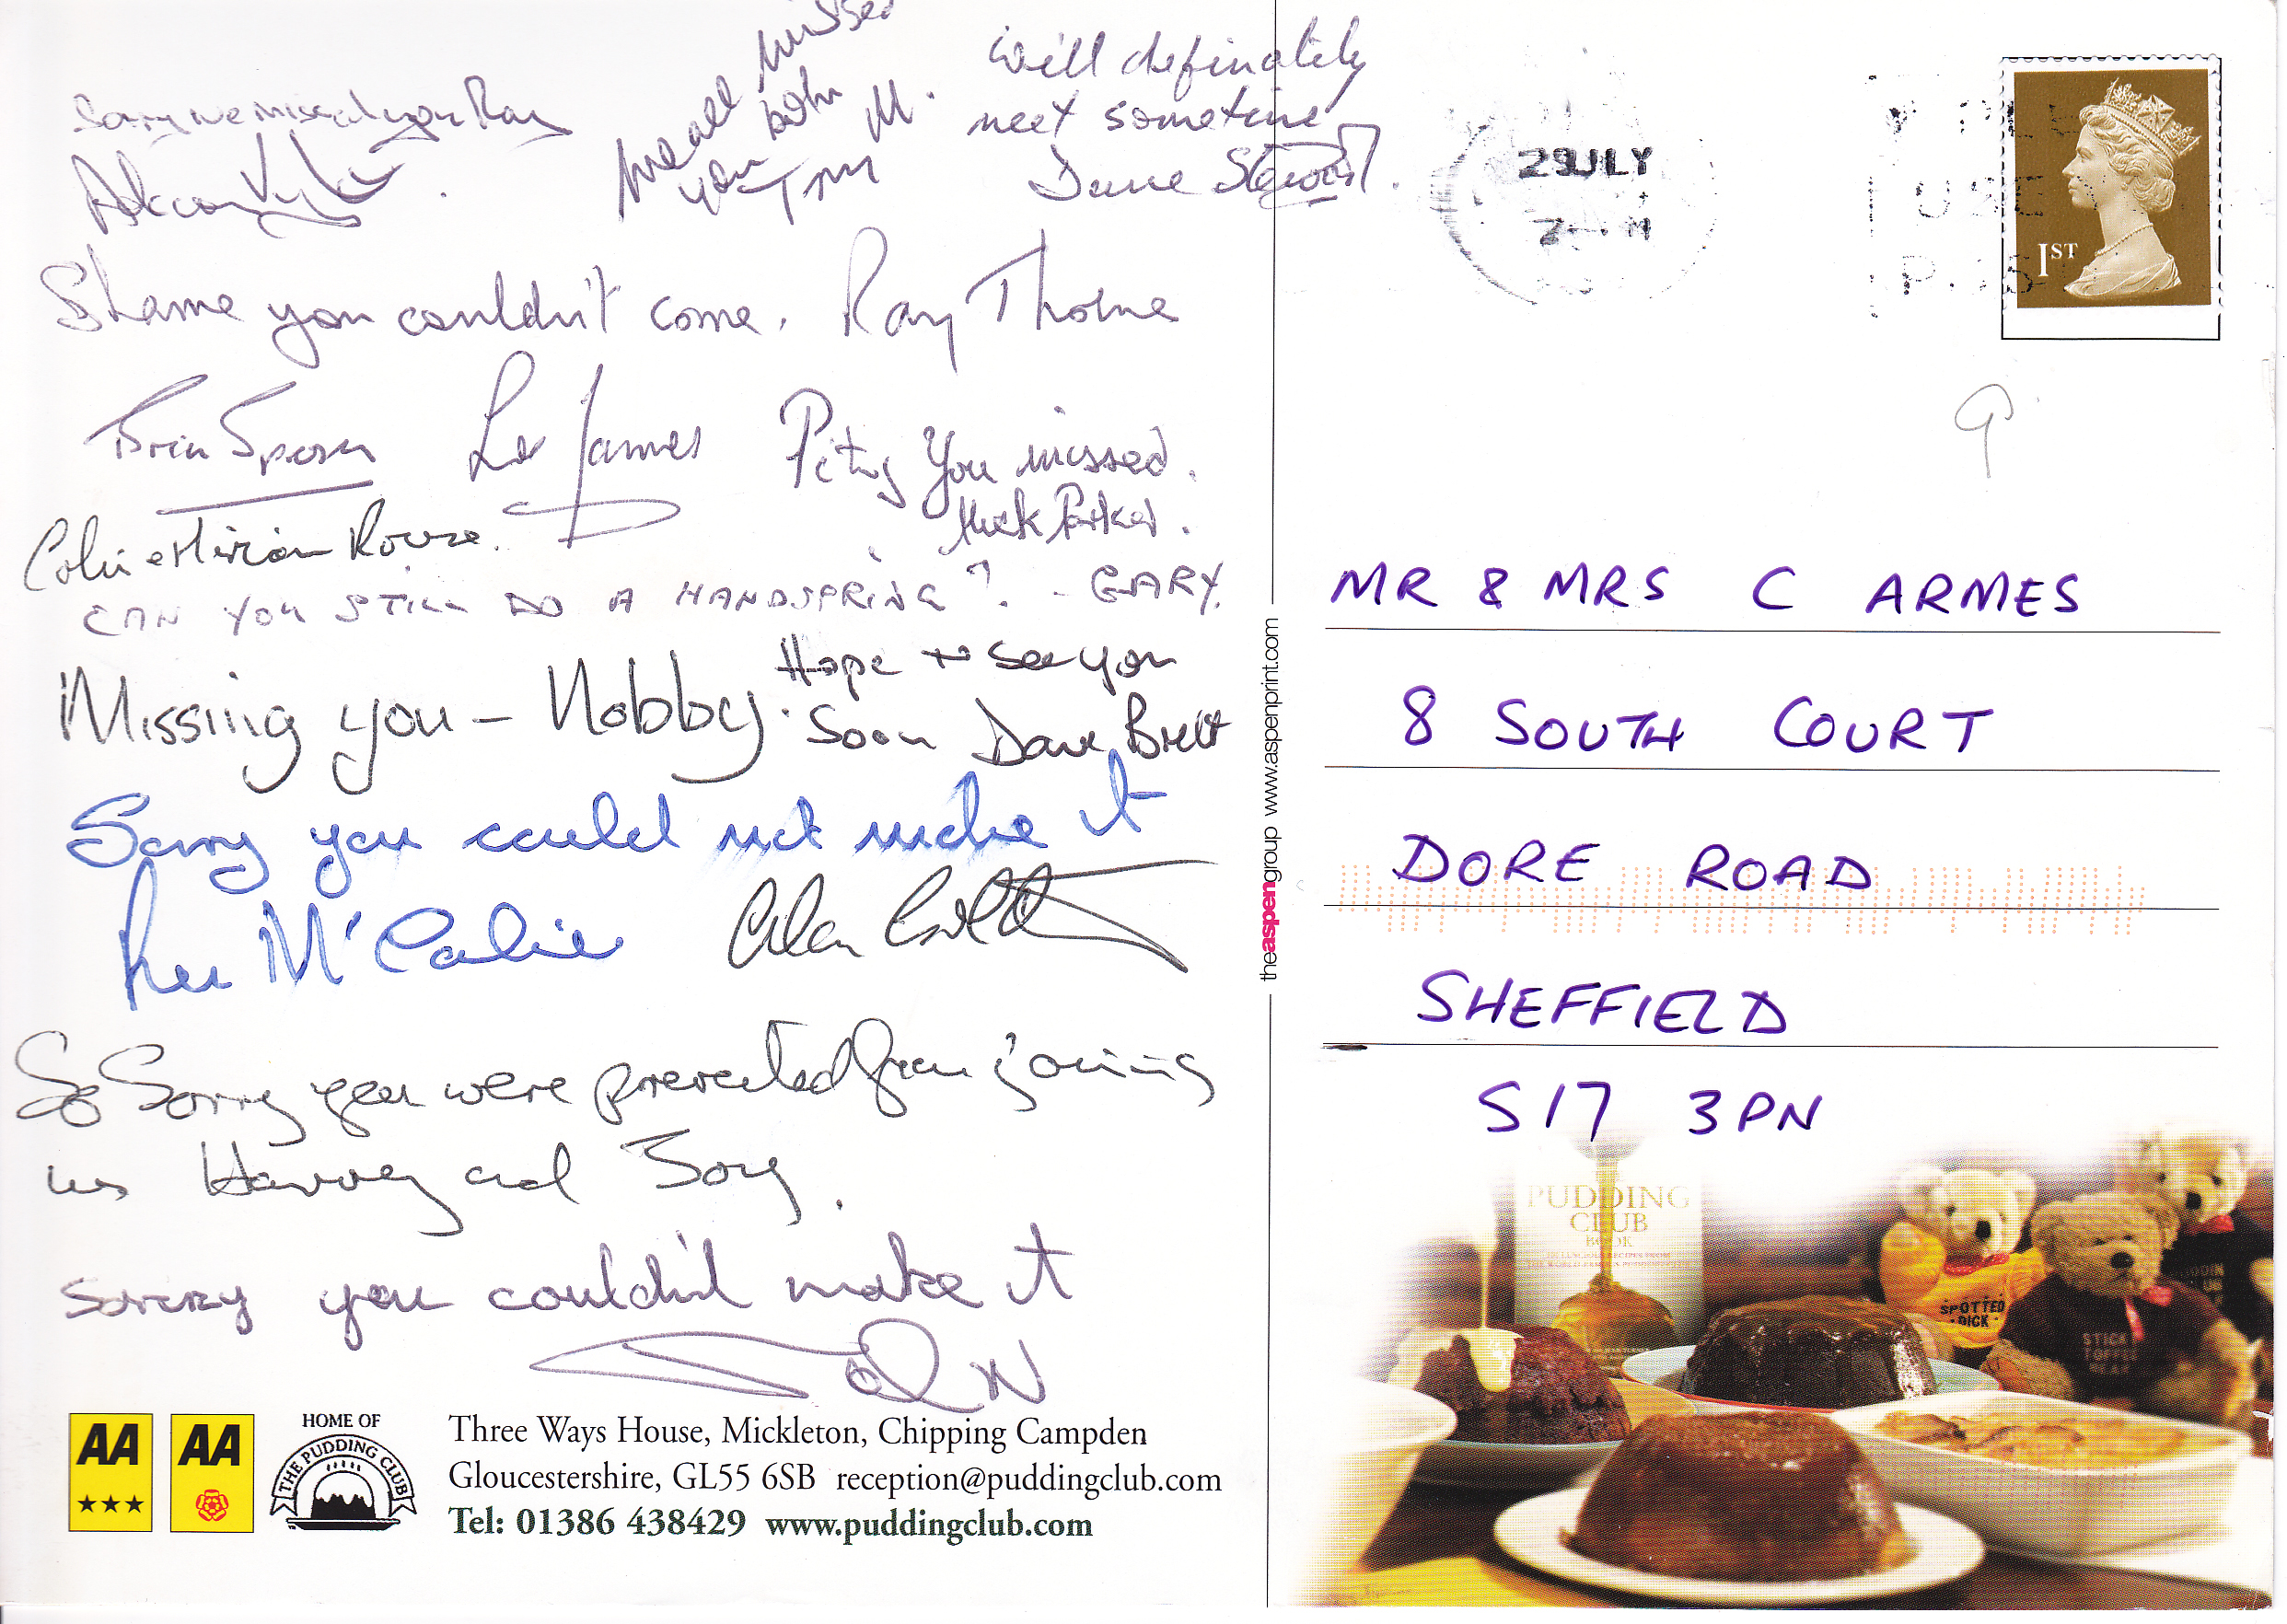 Sorry we missed you Ray
We all missed
you both
Will definately
meet sometime
Dave Stewart.
Shame you couldn't come. Ray Thorne
James
Pity You missed.
Mick Parker.
Colin & Miriam Rouse.
CAN YOU STILL DO A HANDSPRING? - GARY.
Missing you - Nobby.
Hope to see you
Soon Dave Brett
Sorry you could not make it
Alan
So Sorry you were prevented from joining
us Harvey and
Sorry you couldn't make it
AA
AA
HOME OF
THE PUDDING CLUB
Three Ways House, Mickleton, Chipping Campden
Gloucestershire, GL55 6SB reception@puddingclub.com
Tel: 01386 438429 www.puddingclub.com
theaspengroup www.aspenprint.com
29JLY
1ST
MR & MRS C ARMES
8 SOUTH COURT
DORE ROAD
SHEFFIELD
S17 3PN
PUDDING
CLUB
BOOK
SPOTTED
DICK